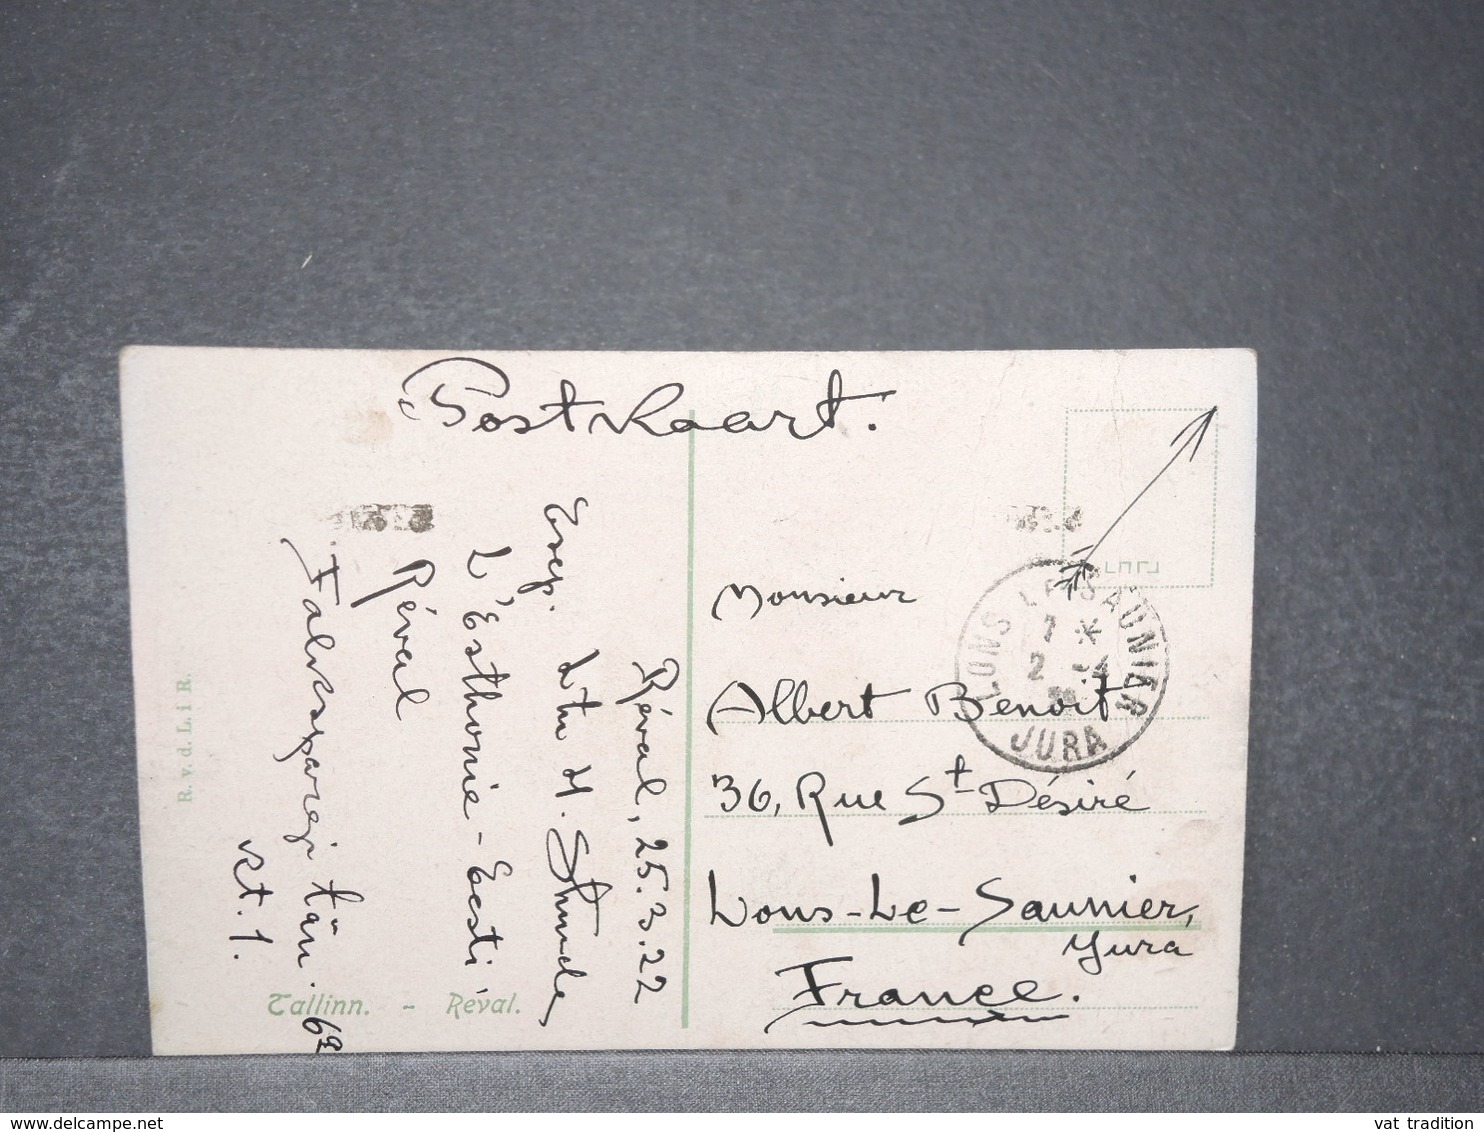 Postkaart.
Réval, 25.3.22
Exep.
L'Esthonie - Eesti
Réval
tän. 62
kt. 1.
R. v. d. L. i R.
Tallinn. - Reval.
Monsieur
Albert Benoit
36, Rue St Désiré
Lons-Le-Saunier,
Jura
France.
LONS-LE-SAUNIER
7 *
2 -4
JURA
www.delcampe.net
vat tradition